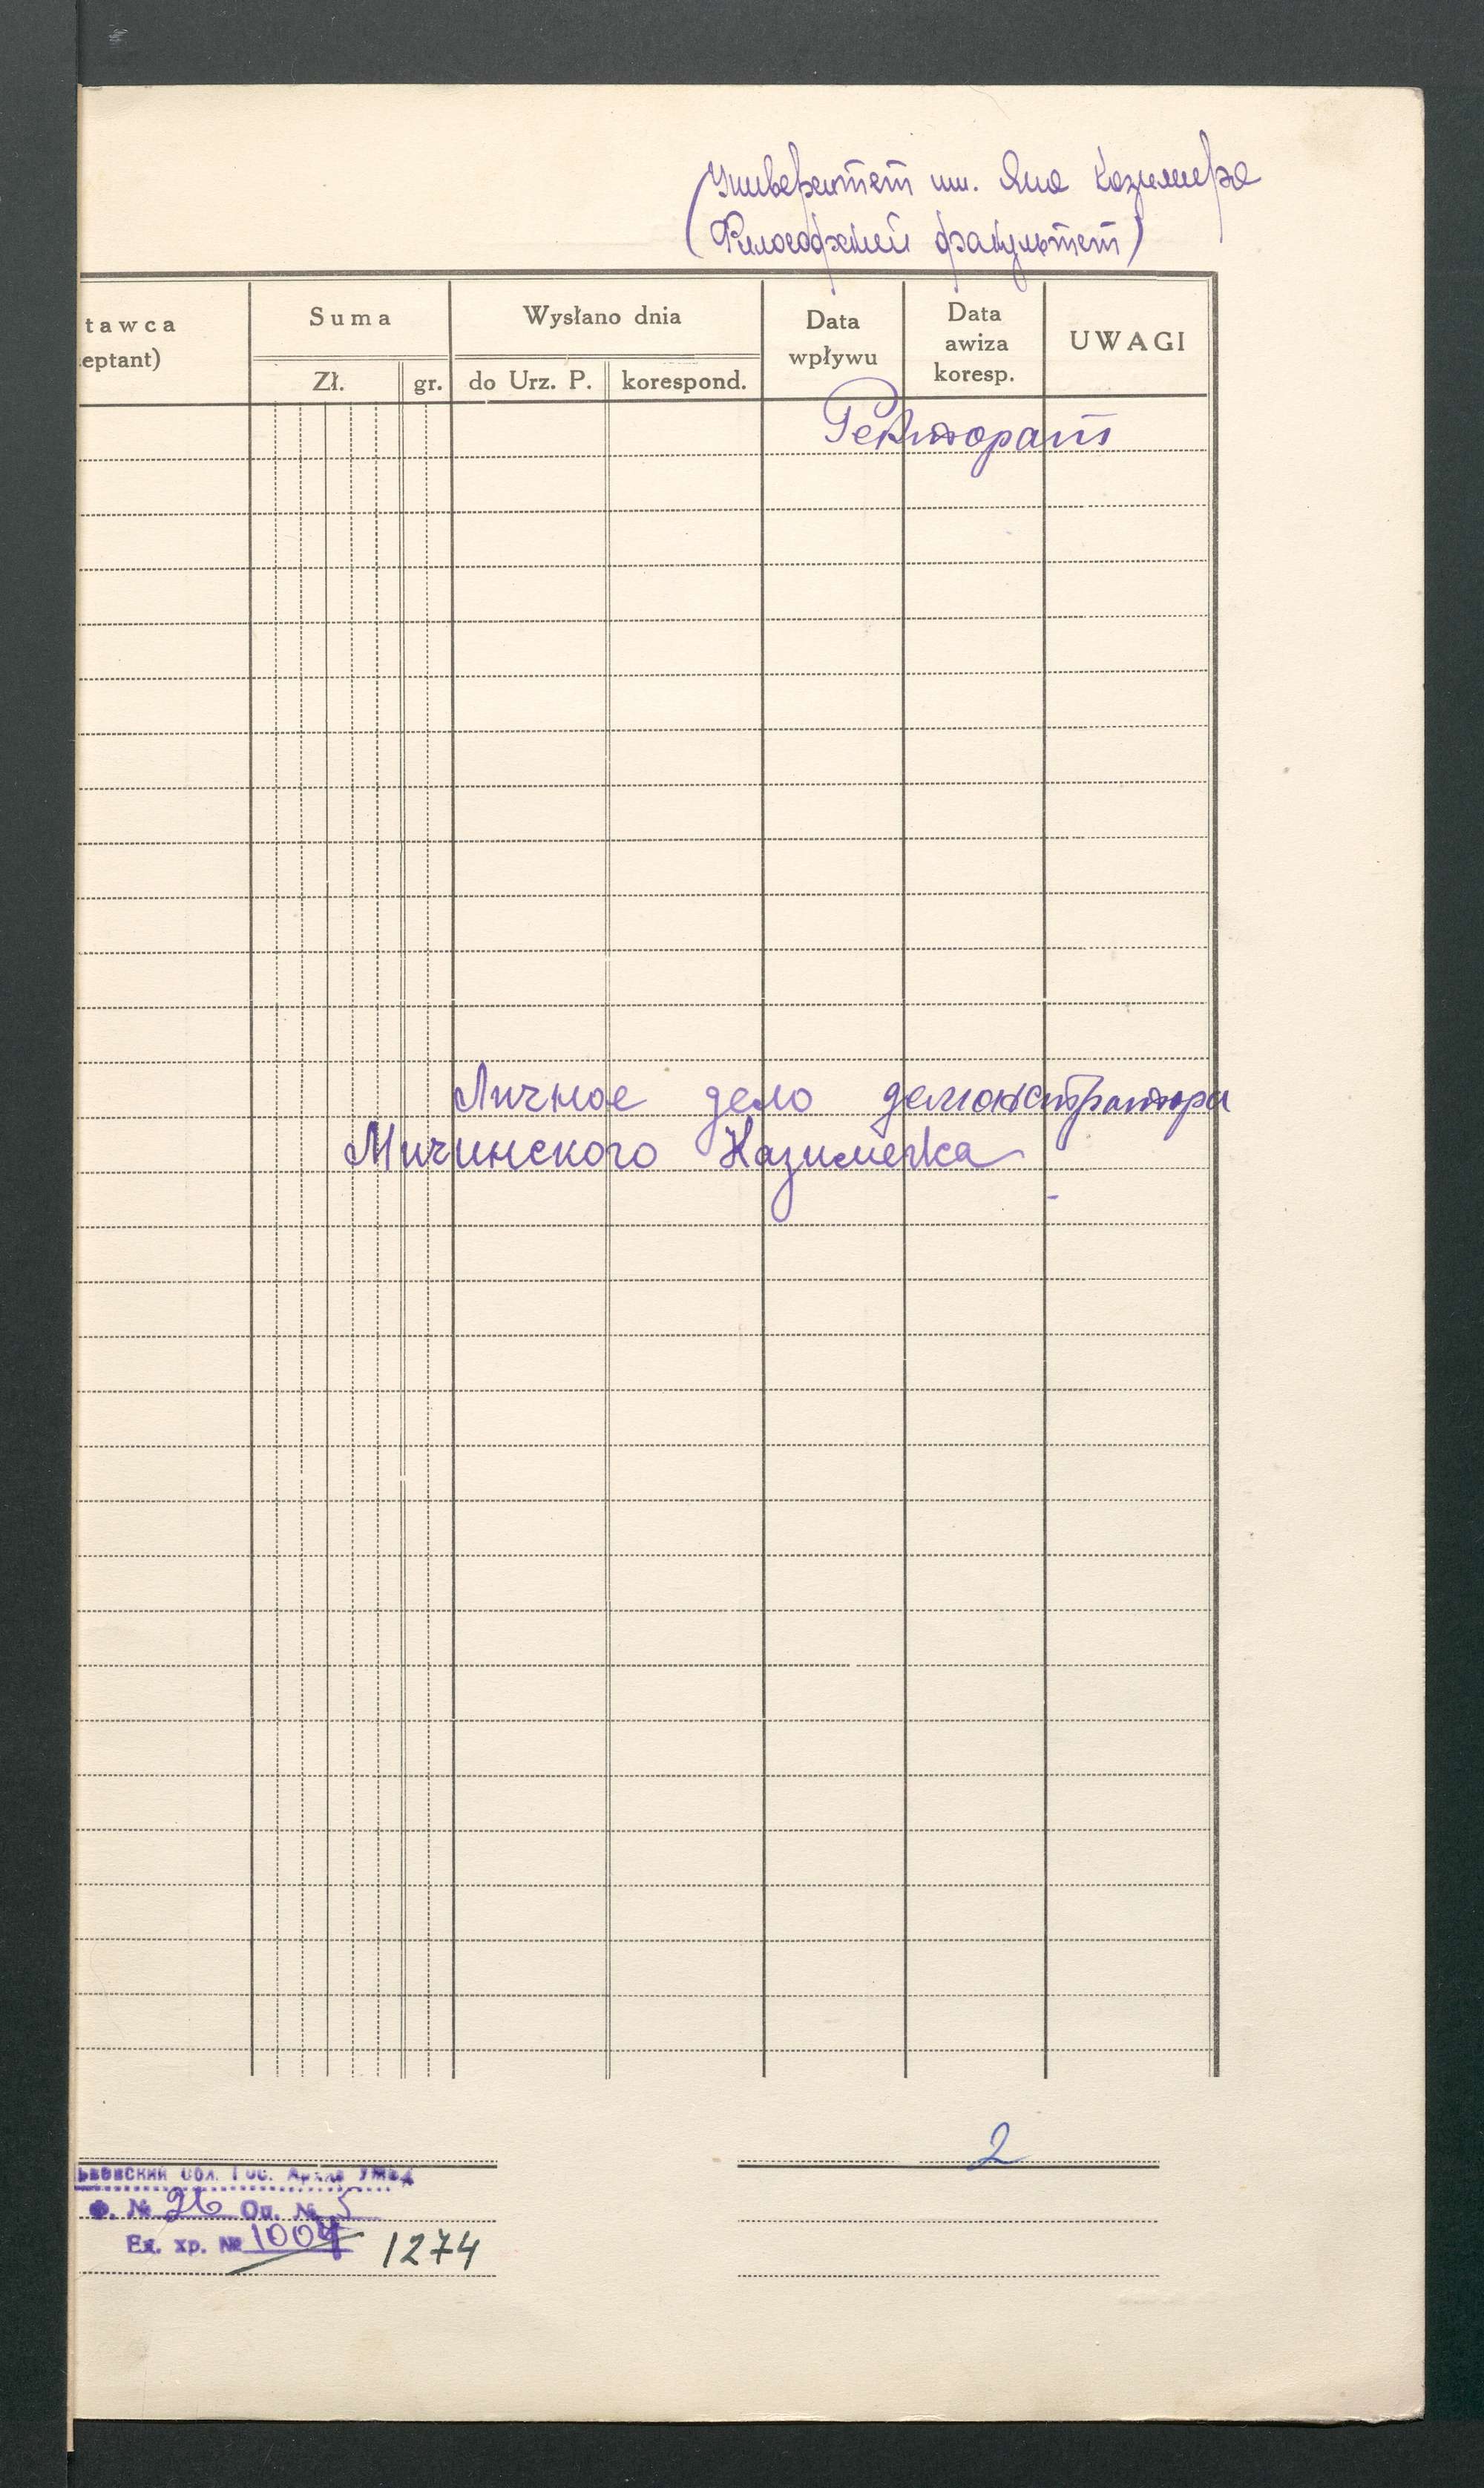 Университет им. Яна Казимира
(Философский факультет)
tawca
eptant)
Suma
Zł.
gr.
Wysłano dnia
do Urz. P.
korespond.
Data
wpływu
Data
awiza
koresp.
UWAGI
Ректорат
Личное дело демонстратора
Мичинского Казимежа
2
ьвовский Обл. Гос. Архив УМВД
Ф. № 26 Оп. № 5
Ед. хр. № 1004 1274